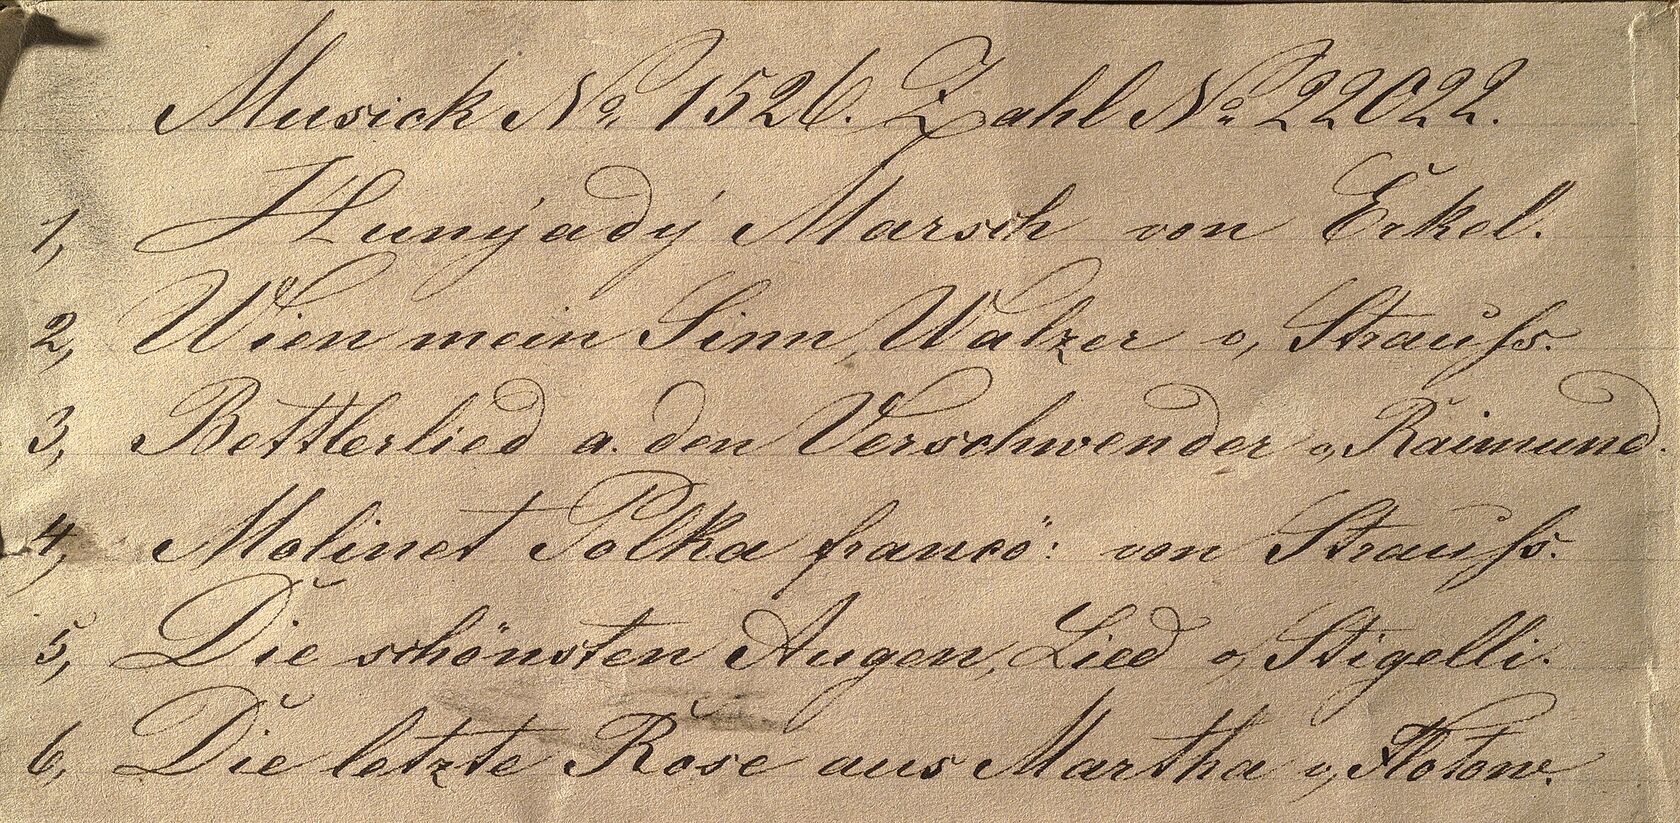 Musick No. 1526. Zahl No. 22022.
1, Hunÿadÿ Marsch von Erkel.
2, Wien mein Sinn, Walzer v, Strauſs.
3, Bettlerlied a. den Verschwender v, Raimund.
4, Molinet Polka francö: von Strauſs.
5, Die schönsten Augen, Lied v, Stigelli.
6, Die letzte Rose aus Martha v, Flotow.